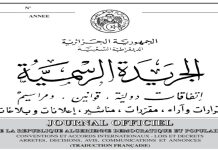 N°
ANNEE
الجمهورية الجزائرية
الديمقراطية الشعبية
الجريدة الرسمية
إتفاقات دولية، قوانين، ومراسيم
قرارات وآراء، مقررات، مناشير، إعلانات وبلاغات
JOURNAL OFFICIEL
DE LA REPUBLIQUE ALGERIENNE DEMOCRATIQUE ET POPULAIRE
CONVENTIONS ET ACCORDS INTERNATIONAUX - LOIS ET DECRETS
ARRETES, DECISIONS, AVIS, COMMUNICATIONS ET ANNONCES
(TRADUCTION FRANÇAISE)